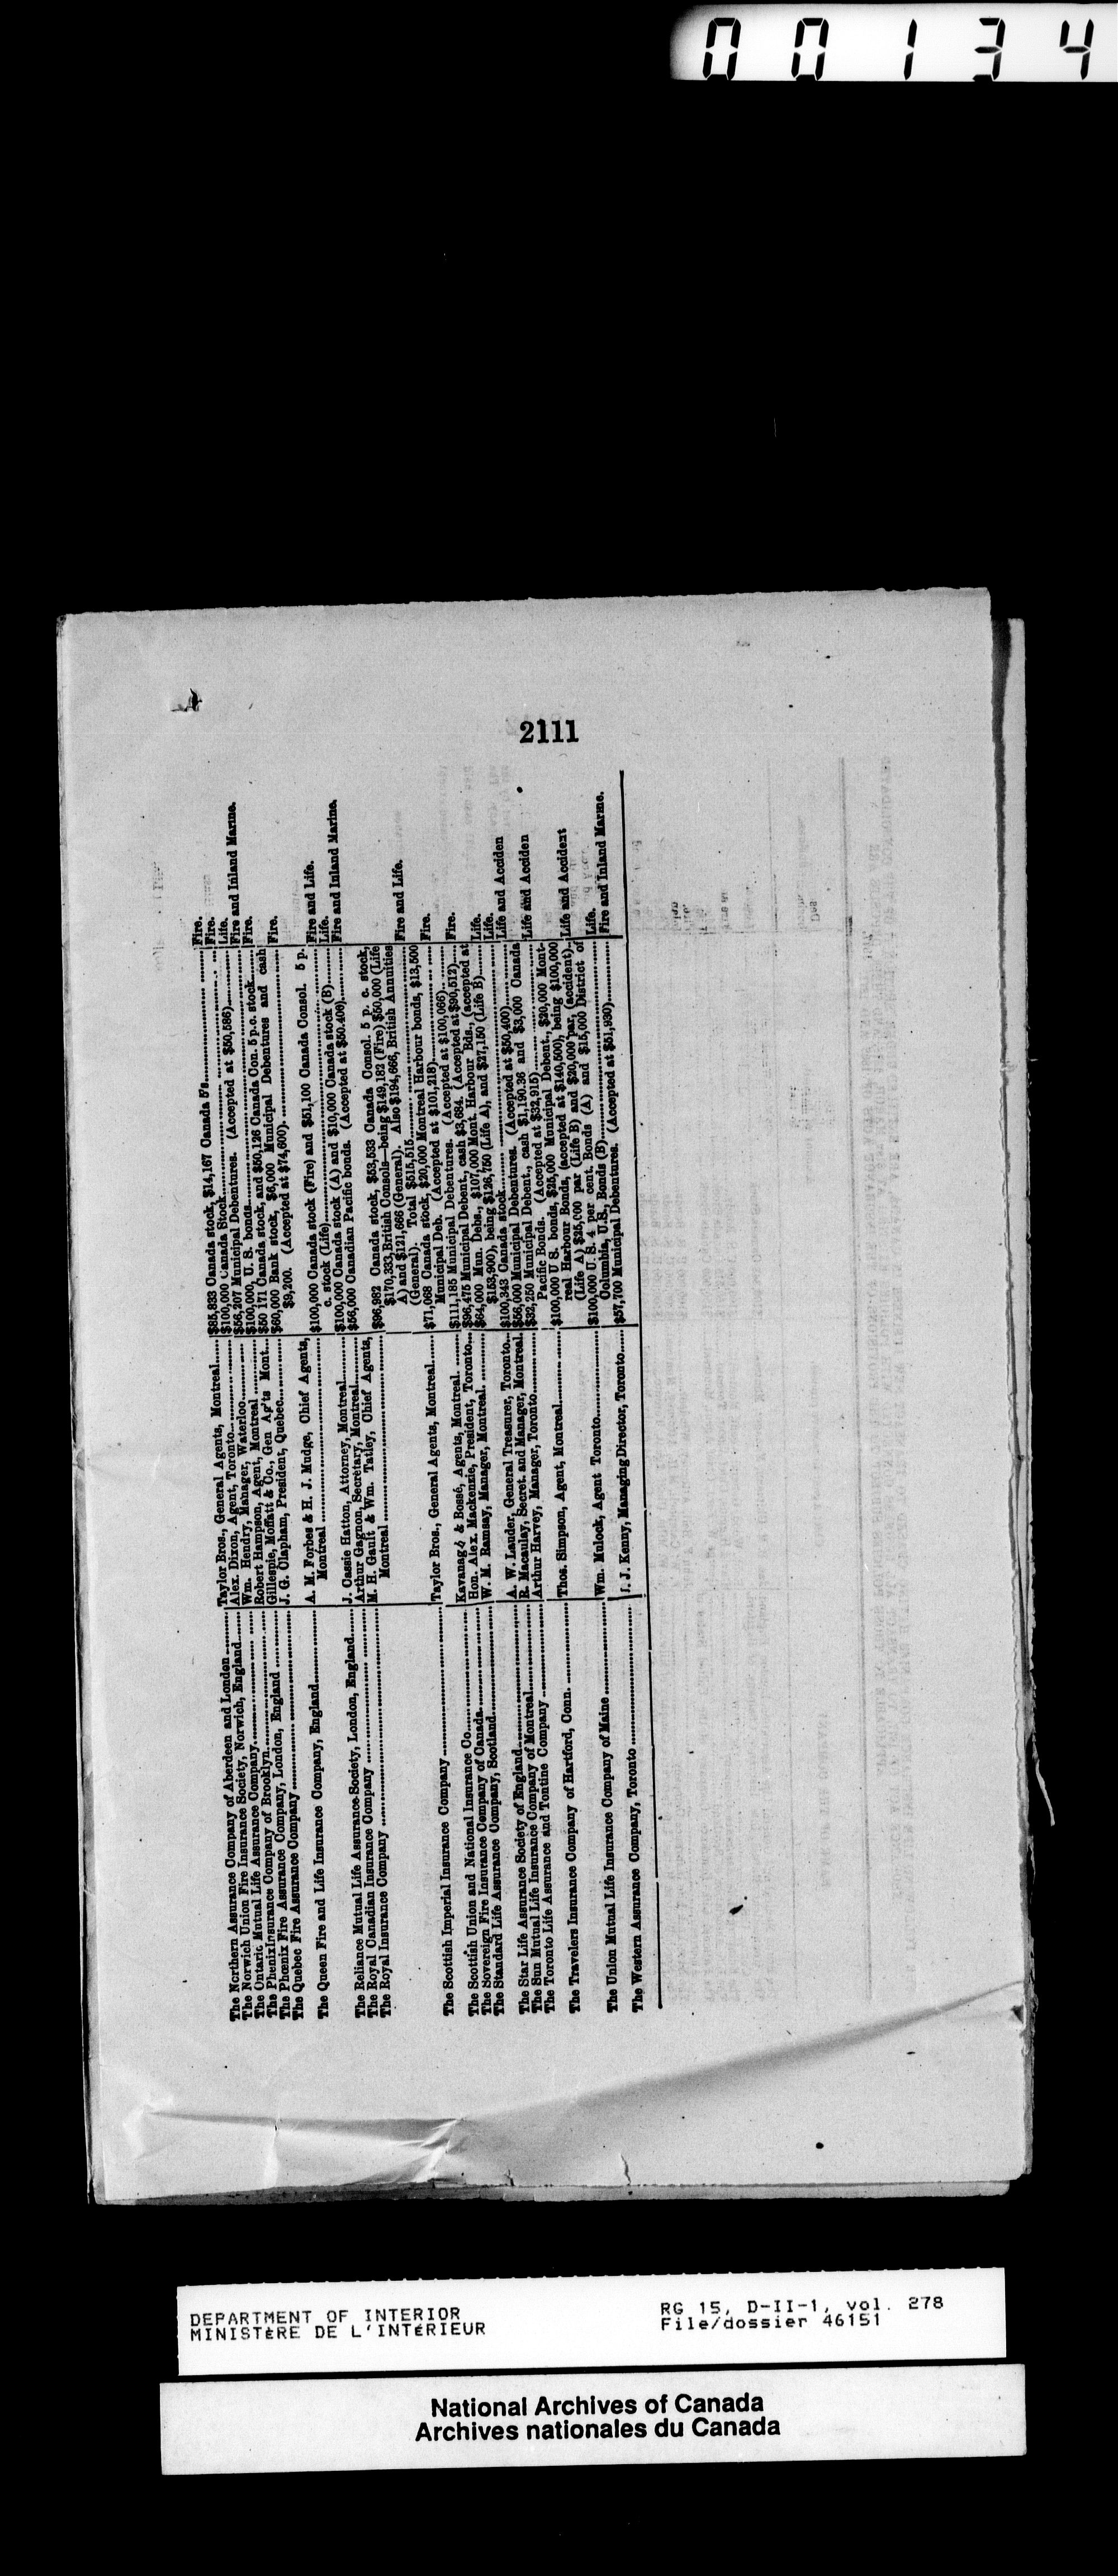 00134
2111
The Northern Assurance Company of Aberdeen and London Taylor Bros., General Agents, Montreal $85,833 Canada stock, $14,167 Canada 5's Fire.
The Norwich Union Fire Insurance Society, Norwich, England Alex. Dixon, Agent, Toronto $100,000 Canada Stock Fire.
The Ontario Mutual Life Assurance Company Wm. Hendry, Manager, Waterloo $56,207 Municipal Debentures. (Accepted at $50,586) Life.
The Phenix Insurance Company of Brooklyn Robert Hampson, Agent, Montreal $100,000, U. S. bonds Fire and Inland Marine.
The Phœnix Fire Assurance Company, London, England Gillespie, Moffatt & Co., Gen Ag'ts Mont $50 171 Canada stock, and $50,126 Canada Con. 5 p.c. stock Fire.
The Quebec Fire Assurance Company J. G. Clapham, President, Quebec $60,000 Bank stock, $6,000 Municipal Debentures and cash
$9,200. (Accepted at $74,600) Fire.
The Queen Fire and Life Insurance Company, England A. M. Forbes & H. J. Mudge, Chief Agents,
Montreal $100,000 Canada stock (Fire) and $51,100 Canada Consol. 5 p.
c. stock (Life) Fire and Life.
The Reliance Mutual Life Assurance Society, London, England J. Cassie Hatton, Attorney, Montreal $100,000 Canada stock (A) and $10,000 Canada stock (B) Life.
The Royal Canadian Insurance Company Arthur Gagnon, Secretary, Montreal $56,000 Canadian Pacific bonds. (Accepted at $50.406) Fire and Inland Marine.
The Royal Insurance Company M. H. Gault & Wm. Tatley, Chief Agents,
Montreal $96,982 Canada stock, $53,533 Canada Consol. 5 p. c. stock,
$170,333, British Consols—being $149,182 (Fire) $50,000 (Life
A) and $121,666 (General). Also $194,666, British Annuities
(General). Total $515,515 Fire and Life.
The Scottish Imperial Insurance Company Taylor Bros., General Agents, Montreal $71,068 Canada stock, $20,000 Montreal Harbour bonds, $13,500
Municipal Deb. (Accepted at $101,218) Fire.
The Scottish Union and National Insurance Co Kavanagh & Bossé, Agents, Montreal. $111,185 Municipal Debentures. (Accepted at $100,066) Fire.
The Sovereign Fire Insurance Company of Canada Hon. Alex. Mackenzie, President, Toronto $96,475 Municipal Debent., cash $3,684. (Accepted at $90,512)
The Standard Life Assurance Company, Scotland W. M. Ramsay, Manager, Montreal. $64,000 Mun. Debs., $107,000 Mont. Harbour Bds., (accepted at
$153,900), being $126,750 (Life A), and $27,150 (Life B) Life.
The Star Life Assurance Society of England A. W. Lauder, General Treasurer, Toronto $100,343 Canada stock Life.
The Sun Mutual Life Insurance Company of Montreal R. Macaulay, Secret. and Manager, Montreal $56,000 Municipal Debentures. (Accepted at $50,400) Life and Acciden
The Toronto Life Assurance and Tontine Company Arthur Harvey, Manager, Toronto $32,250 Municipal Debent., cash $1,190.36 and $3,000 Canada
Pacific Bonds. (Accepted at $32,915) Life and Acciden
The Travelers Insurance Company of Hartford, Conn. Thos. Simpson, Agent, Montreal $100,000 U S. bonds, $25,000 Municipal Debent., $20,000 Mont-
real Harbour Bonds, (accepted at $140,500), being $100,000
(Life A) $25,000 par (Life B) and $20,000 par, (accident) Life and Accident
The Union Mutual Life Insurance Company of Maine Wm. Mulock, Agent Toronto $100,000 U. S. 4 per cent. Bonds (A) and $15,000 District of
Columbia, U.S., Bonds (B) Life.
The Western Assurance Company, Toronto J. J. Kenny, Managing Director, Toronto $57,700 Municipal Debentures. (Accepted at $51,930) Fire and Inland Marine.
DEPARTMENT OF INTERIOR
MINISTÈRE DE L'INTÉRIEUR
RG 15, D-II-1, vol. 278
File/dossier 46151
National Archives of Canada
Archives nationales du Canada